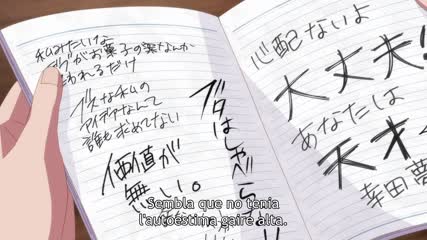 私みたいな
デブがお菓子の案なんか
われるだけ
ブスな私の
アイデアなんて
誰も求めてない
価値が
無い。
ブタはしゃべら
心配ないよ
大丈夫!
あなたは
天才
幸田夢
Sembla que no tenia
l'autoestima gaire alta.